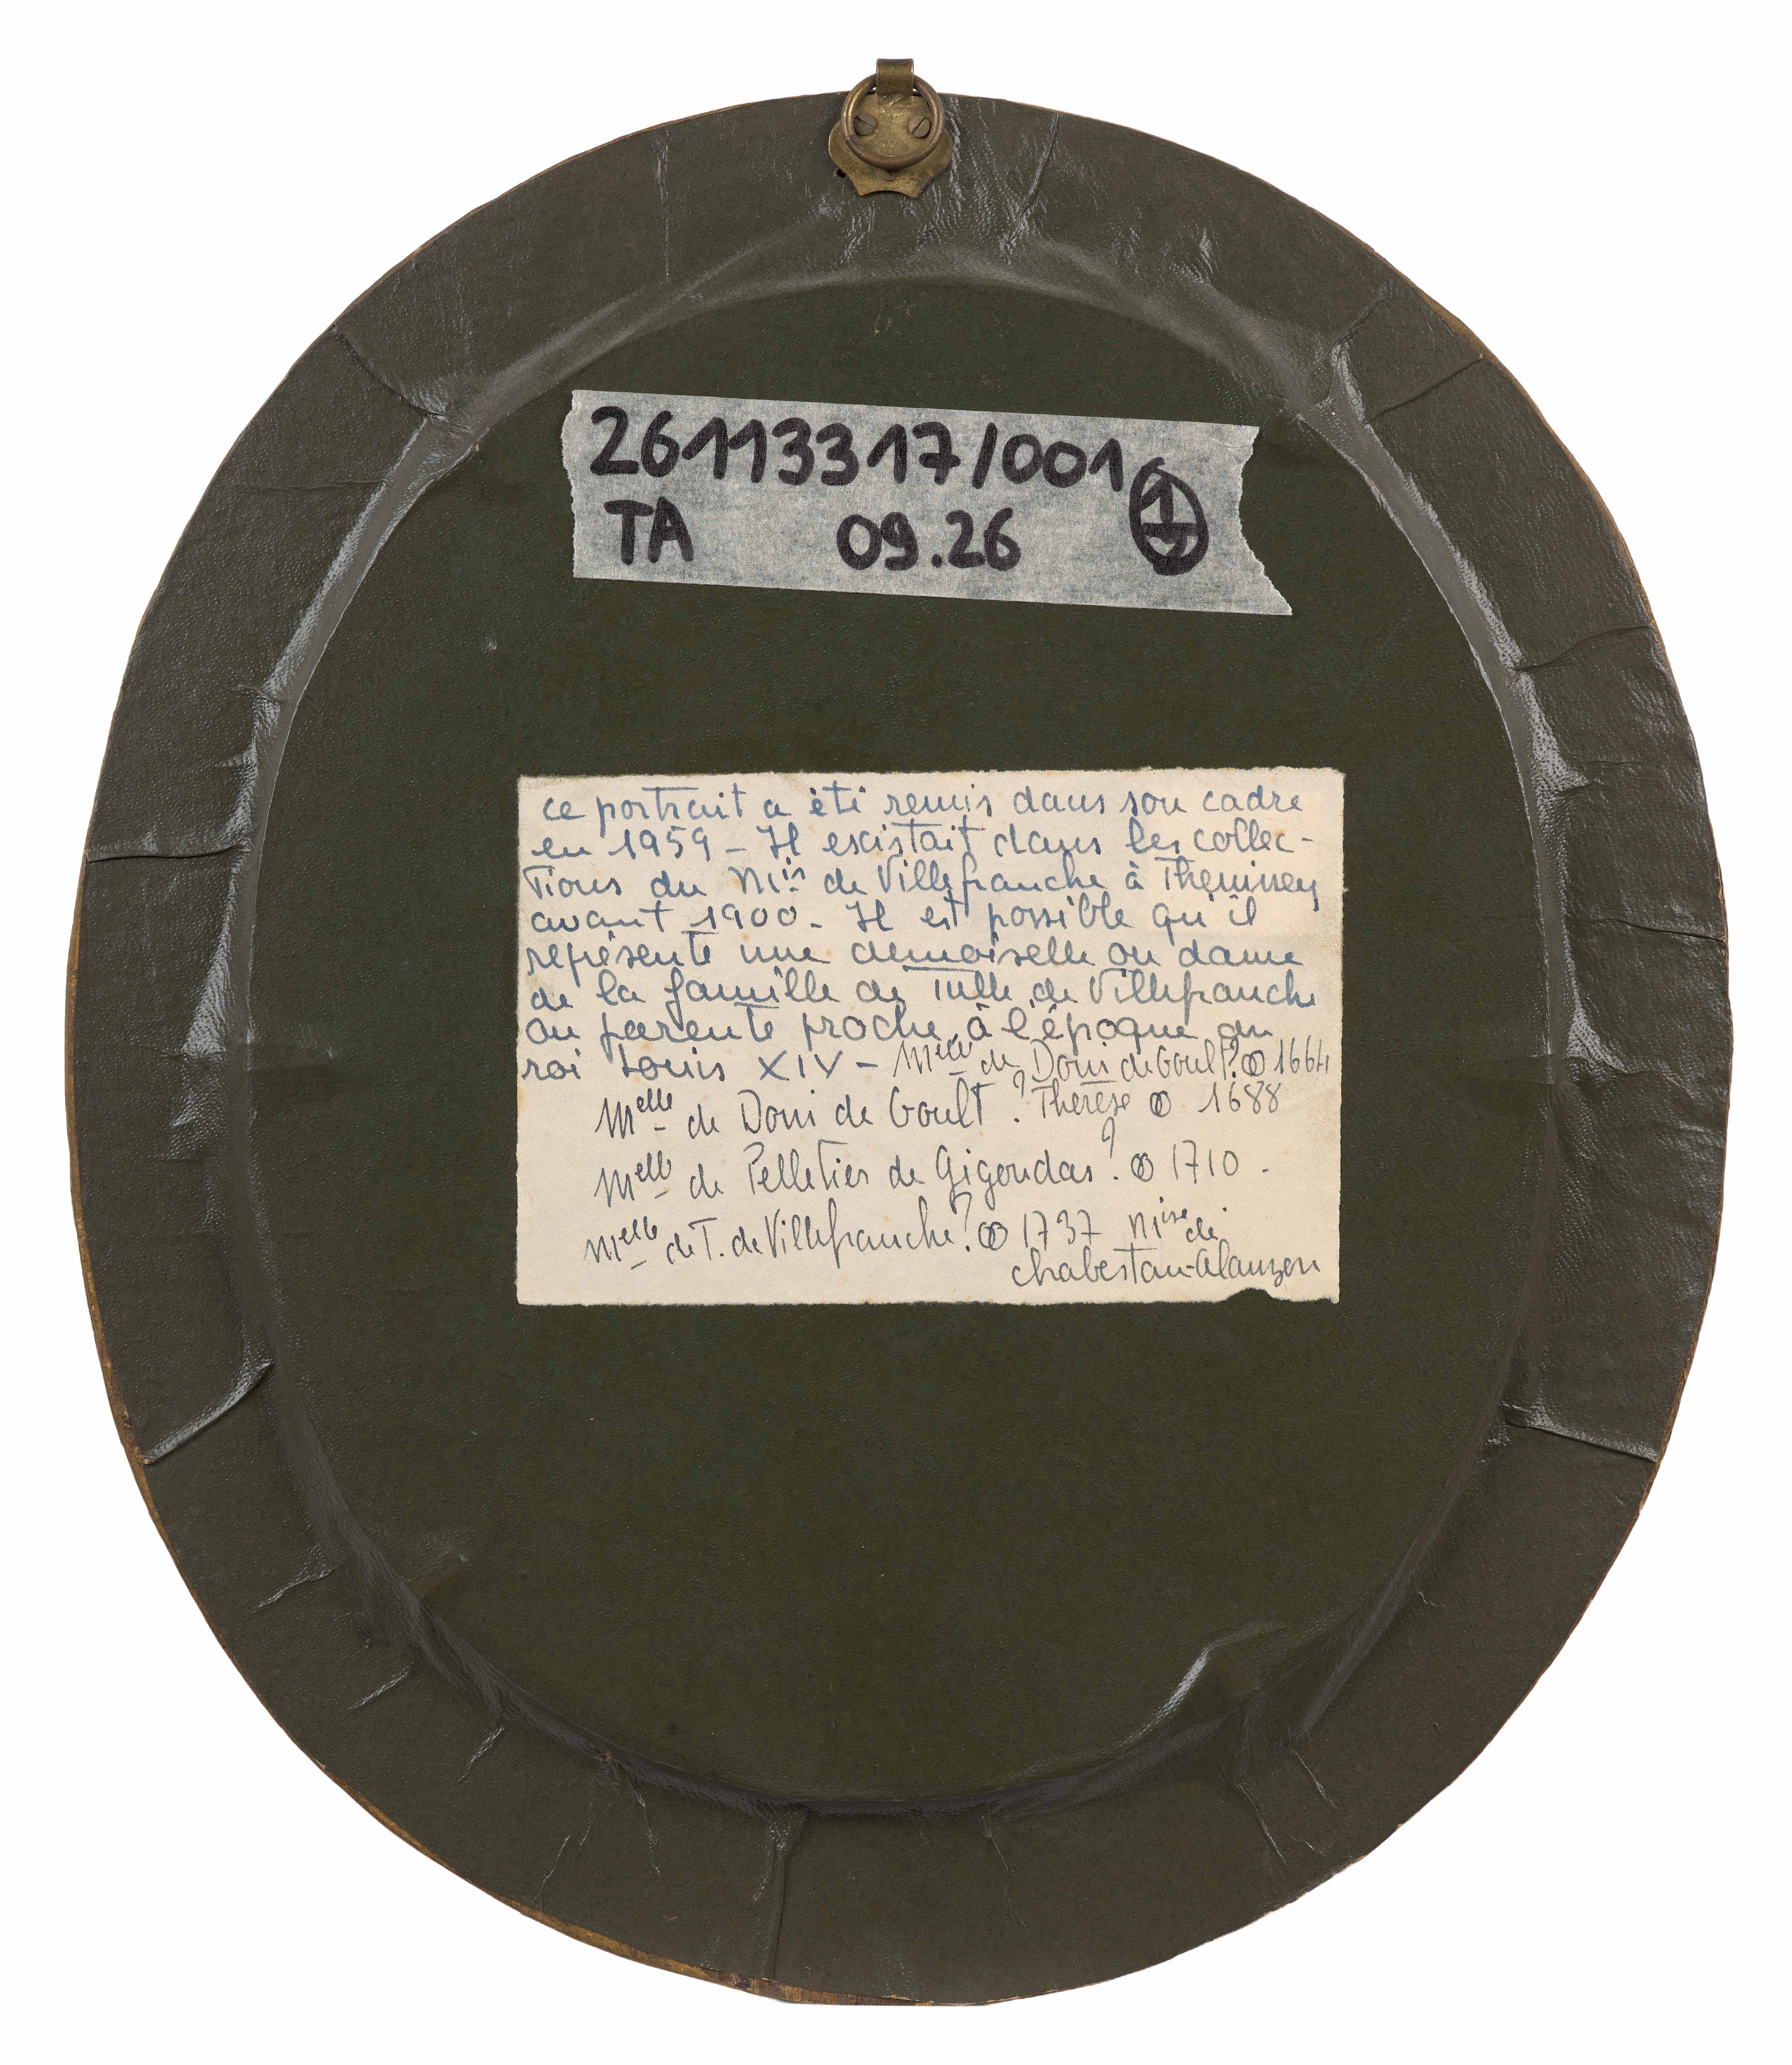 26113317/001
TA 09.26
ce portrait a été remis dans son cadre
en 1959 – Il existait dans les collec-
tions du Mis de Villefranche à Themissey
avant 1900. Il est possible qu'il
représente une demoiselle ou dame
de la famille de Tulle de Villefranche
ou parente proche, à l'époque du
roi Louis XIV – Melle de Doni de Goult? ꝏ 1664
Melle de Doni de Goult? Thérèse ꝏ 1688
Melle de Pelletier de Gigondas? ꝏ 1710 -
Melle de T. de Villefranche? ꝏ 1737 Mise de
Chabestan-Alauzon